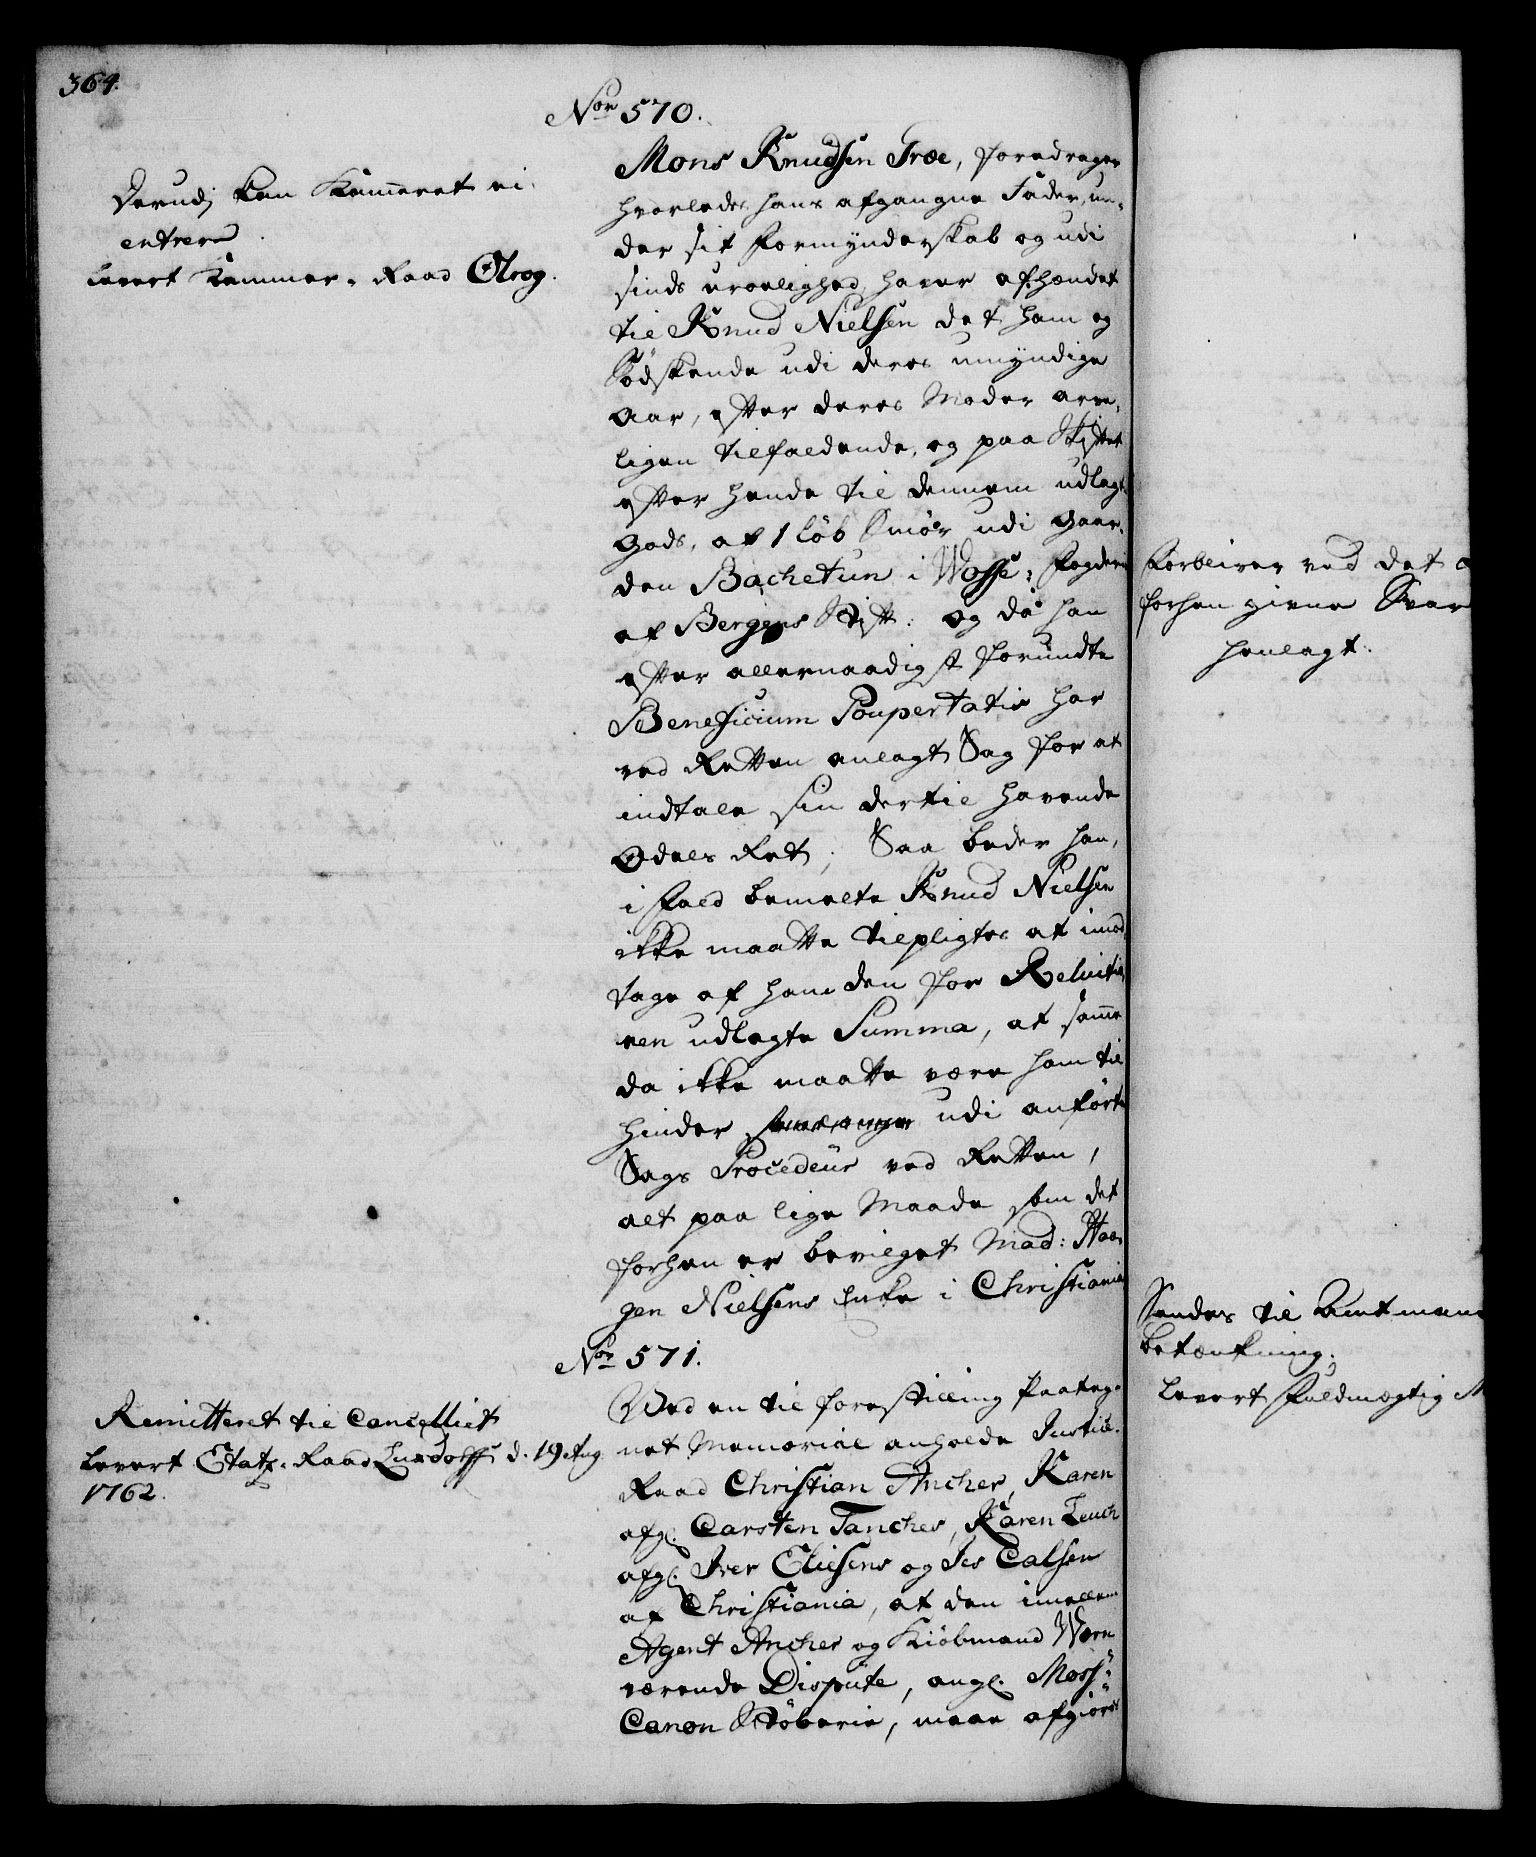 364.
Nor 570.
Derudj kan Kammeret ei
entrere.
Levert Kammer-Raad Olrog.
Mons Knudsen Træe, foredrager
hvorledes hans afgangne Fader, un-
der sit Formynderskab og udi
sinds uroelighed, haver afhændet
til Knud Nielsen det ham og
Södskende udi deres umyndige
Aar, efter deres Moder arve-
ligen tilfaldende, og paa Skiftet
efter hende til dennem udlagt
Gods, af 1 Löb Smör udi Gaar-
den Bachetun i Wosse-Fogderi
af Bergens Stift: Og da han
efter allernaadigst forundte
Beneficium Paupertatis har
ved Retten anlagt Sag for at
indtale sin dertil havende
Odels Ret; Saa beder han,
i fald bemelte Knud Nielsen
ikke maatte tilpligtes at imod-
tage af ham den for Reluitio-
nen udlagte Summa, at samme
da ikke maatte være ham til
hinder udi anförte
Sags Procedeur ved Retten,
alt paa lige Maade som det
forhen er bevilget Mad: Haa-
gen Nielsens Enke i Christiania
Nor 571.
Remitteret til Cancelliet
Levert Etatz-Raad Luxdorff d. 19 Aug
1762.
Ved en til forestilling paateg-
net Memorial anholde Justice-
Raad Christian Ancher, Karen
afg: Carsten Tanches, Karen Leuch
afg: Iver Eliesens og Jes Calsen
af Christiania, at den imellem
Agent Ancher og Kiöbmand Wærn
værende Dispute, angl. Moss-
Canon Stöberie, maae afgiöres
Forbliver ved det
forhen givne Svar
henlagt.
Sendes til Amtmand
betænkning.
Levert Fuldmægtig